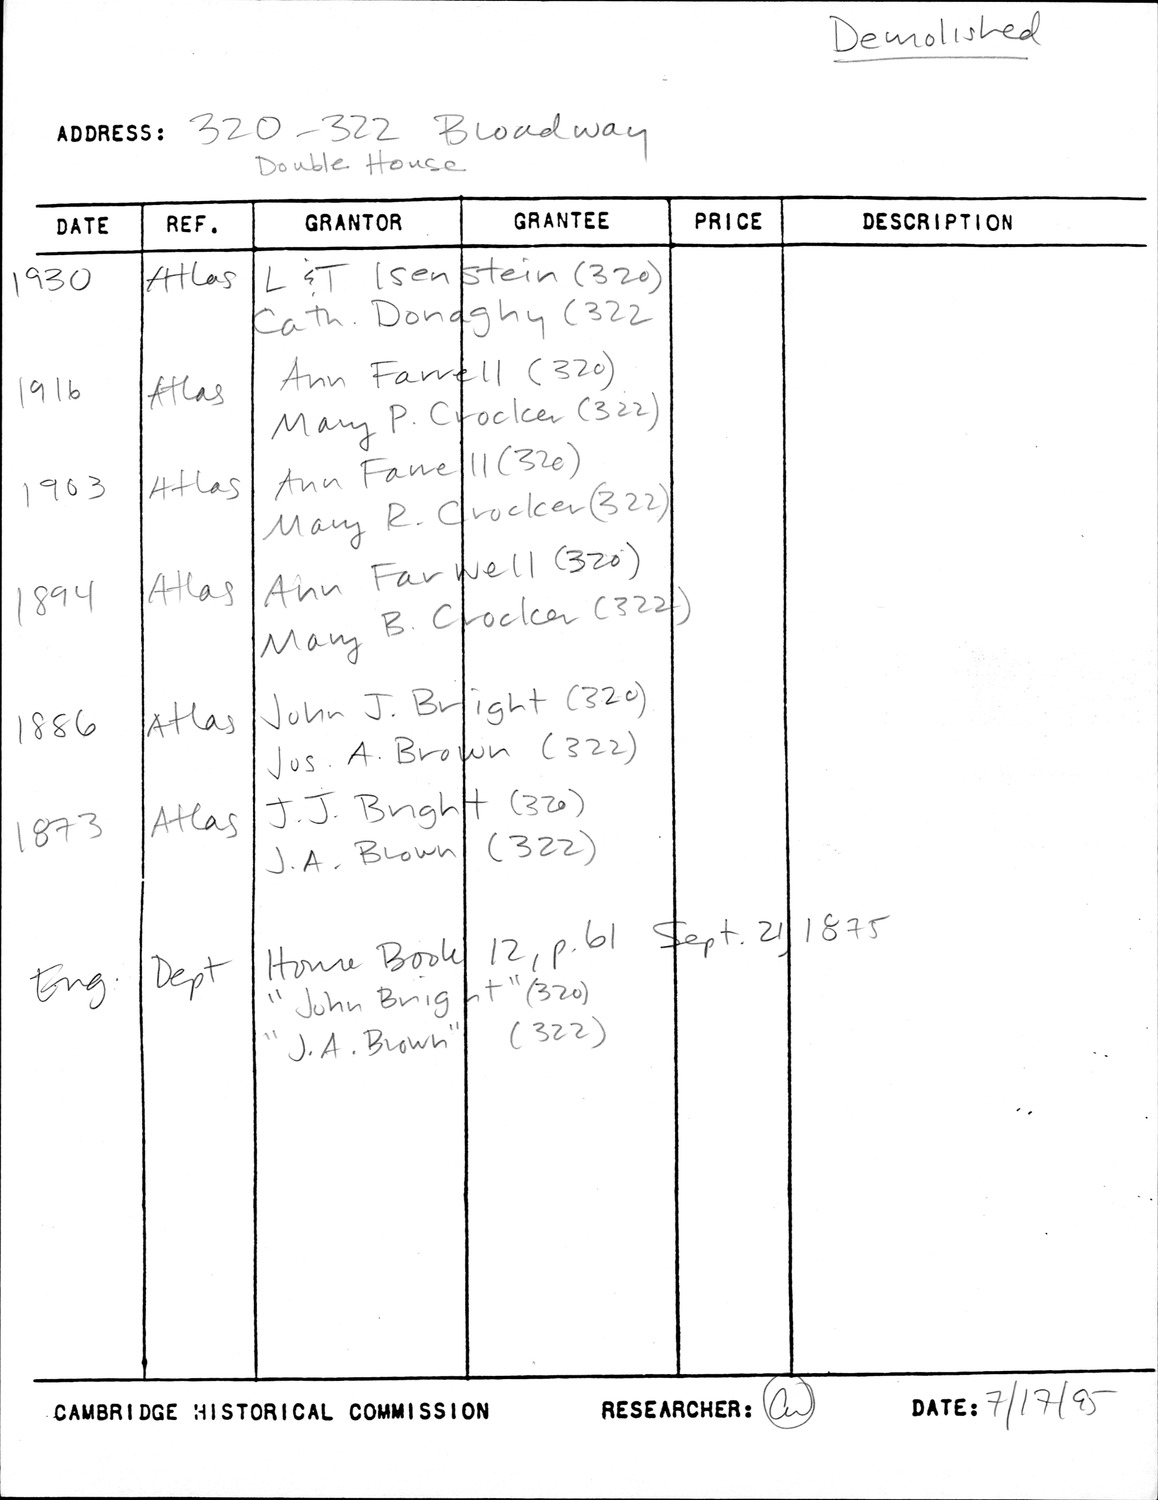 Demolished
ADDRESS: 320-322 Broadway
Double House
DATE REF. GRANTOR GRANTEE PRICE DESCRIPTION
1930 Atlas L & T Isenstein (320)
Cath. Donaghy (322
1916 Atlas Ann Farwell (320)
Mary P. Crocker (322)
1903 Atlas Ann Farwell (320)
Mary R. Crocker (322)
1894 Atlas Ann Farwell (320)
Mary B. Crocker (322)
1886 Atlas John J. Bright (320)
Jos. A. Brown (322)
1873 Atlas J.J. Bright (320)
J.A. Brown (322)
Eng. Dept House Book 12, p.61 Sept. 21, 1875
"John Bright" (320)
"J.A. Brown" (322)
CAMBRIDGE HISTORICAL COMMISSION RESEARCHER: DATE: 7/17/95